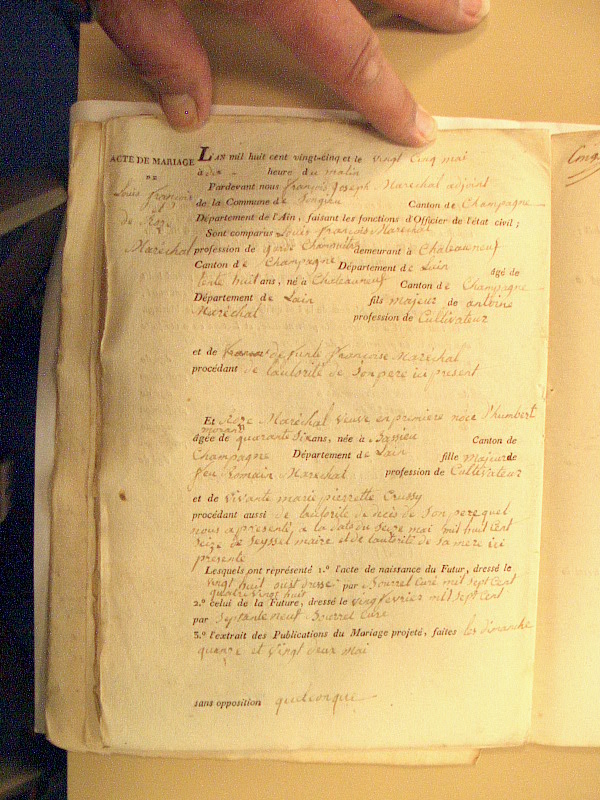 ACTE DE MARIAGE
DE
Louis françois
et
de Roze
Maréchal
L'AN mil huit cent vingt-cinq et le vingt Cinq mai
à dix heure du matin
Pardevant nous françois Joseph Maréchal adjoint
de la Commune de Songieu Canton de Champagne
Département de l'Ain, faisant les fonctions d'Officier de l'état civil;
Sont comparus Louis françois Maréchal
profession de garde Champêtre demeurant à Chateauneuf
Canton de Champagne Département de Lain âgé de
trente huit ans, né à Chateauneuf Canton de Champagne
Département de Lain fils majeur de antoine
Maréchal profession de Cultivateur
et de funte françoise Maréchal
procédant de lautorité de Son pere ici present
Et Roze Maréchal veuve en premiere noce d'humbert
morand
âgée de quarante Six ans, née à Bassieu Canton de
Champagne Département de Lain fille majeur de
feu Romain Maréchal profession de Cultivateur
et de vivante marie pierrette Crussy
procédant aussi de lautorité de Son pere quel
nous a presenté, a la date du Seize mai mil huit Cent
Seize de Seyssel maire et de lautorité de Sa mere ici
presente
Lesquels ont représenté 1.º l'acte de naissance du Futur, dressé le
vingt huit oust par Bourret Curé mil Sept Cent
quatre vingt huit
2.º celui de la Future, dressé le ving fevrier mil Sept Cent
par Septante neuf Bourrel Curé
3.º l'extrait des Publications du Mariage projeté, faites les dimanche
quinze et vingt deux mai
sans opposition quelconque